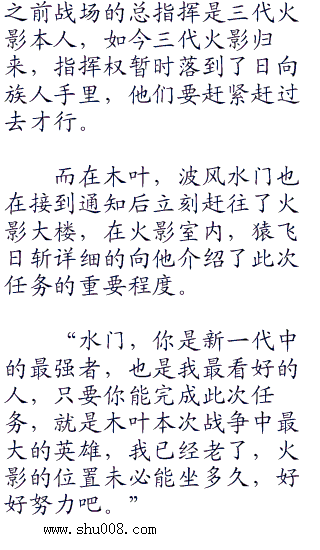 之前战场的总指挥是三代火
影本人，如今三代火影归
来，指挥权暂时落到了日向
族人手里，他们要赶紧赶过
去才行。
而在木叶，波风水门也
在接到通知后立刻赶往了火
影大楼，在火影室内，猿飞
日斩详细的向他介绍了此次
任务的重要程度。
“水门，你是新一代中
的最强者，也是我最看好的
人，只要你能完成此次任
务，就是木叶本次战争中最
大的英雄，我已经老了，火
影的位置未必能坐多久，好
好努力吧。”
www.shu008.com